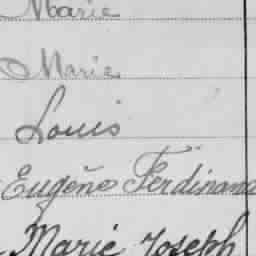 Marie
Marie
Louis
Eugène Ferdinand
Marie Joseph